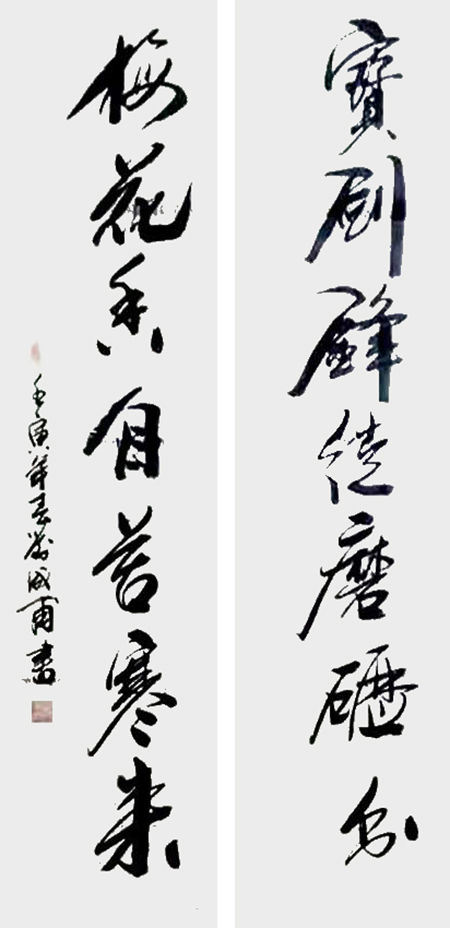 寶劍鋒從磨礪出
梅花香自苦寒來
壬寅年春成甫書